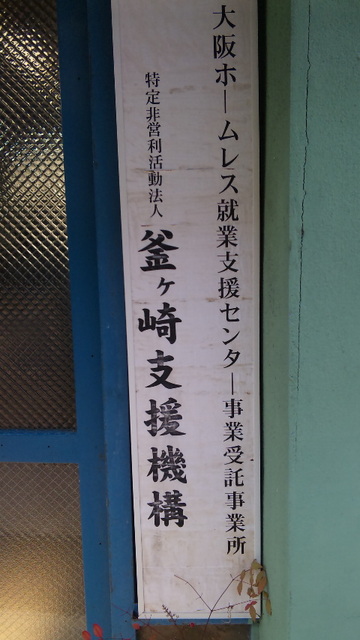 大阪ホームレス就業支援センター事業受託事業所
特定非営利活動法人
釜ヶ崎支援機構